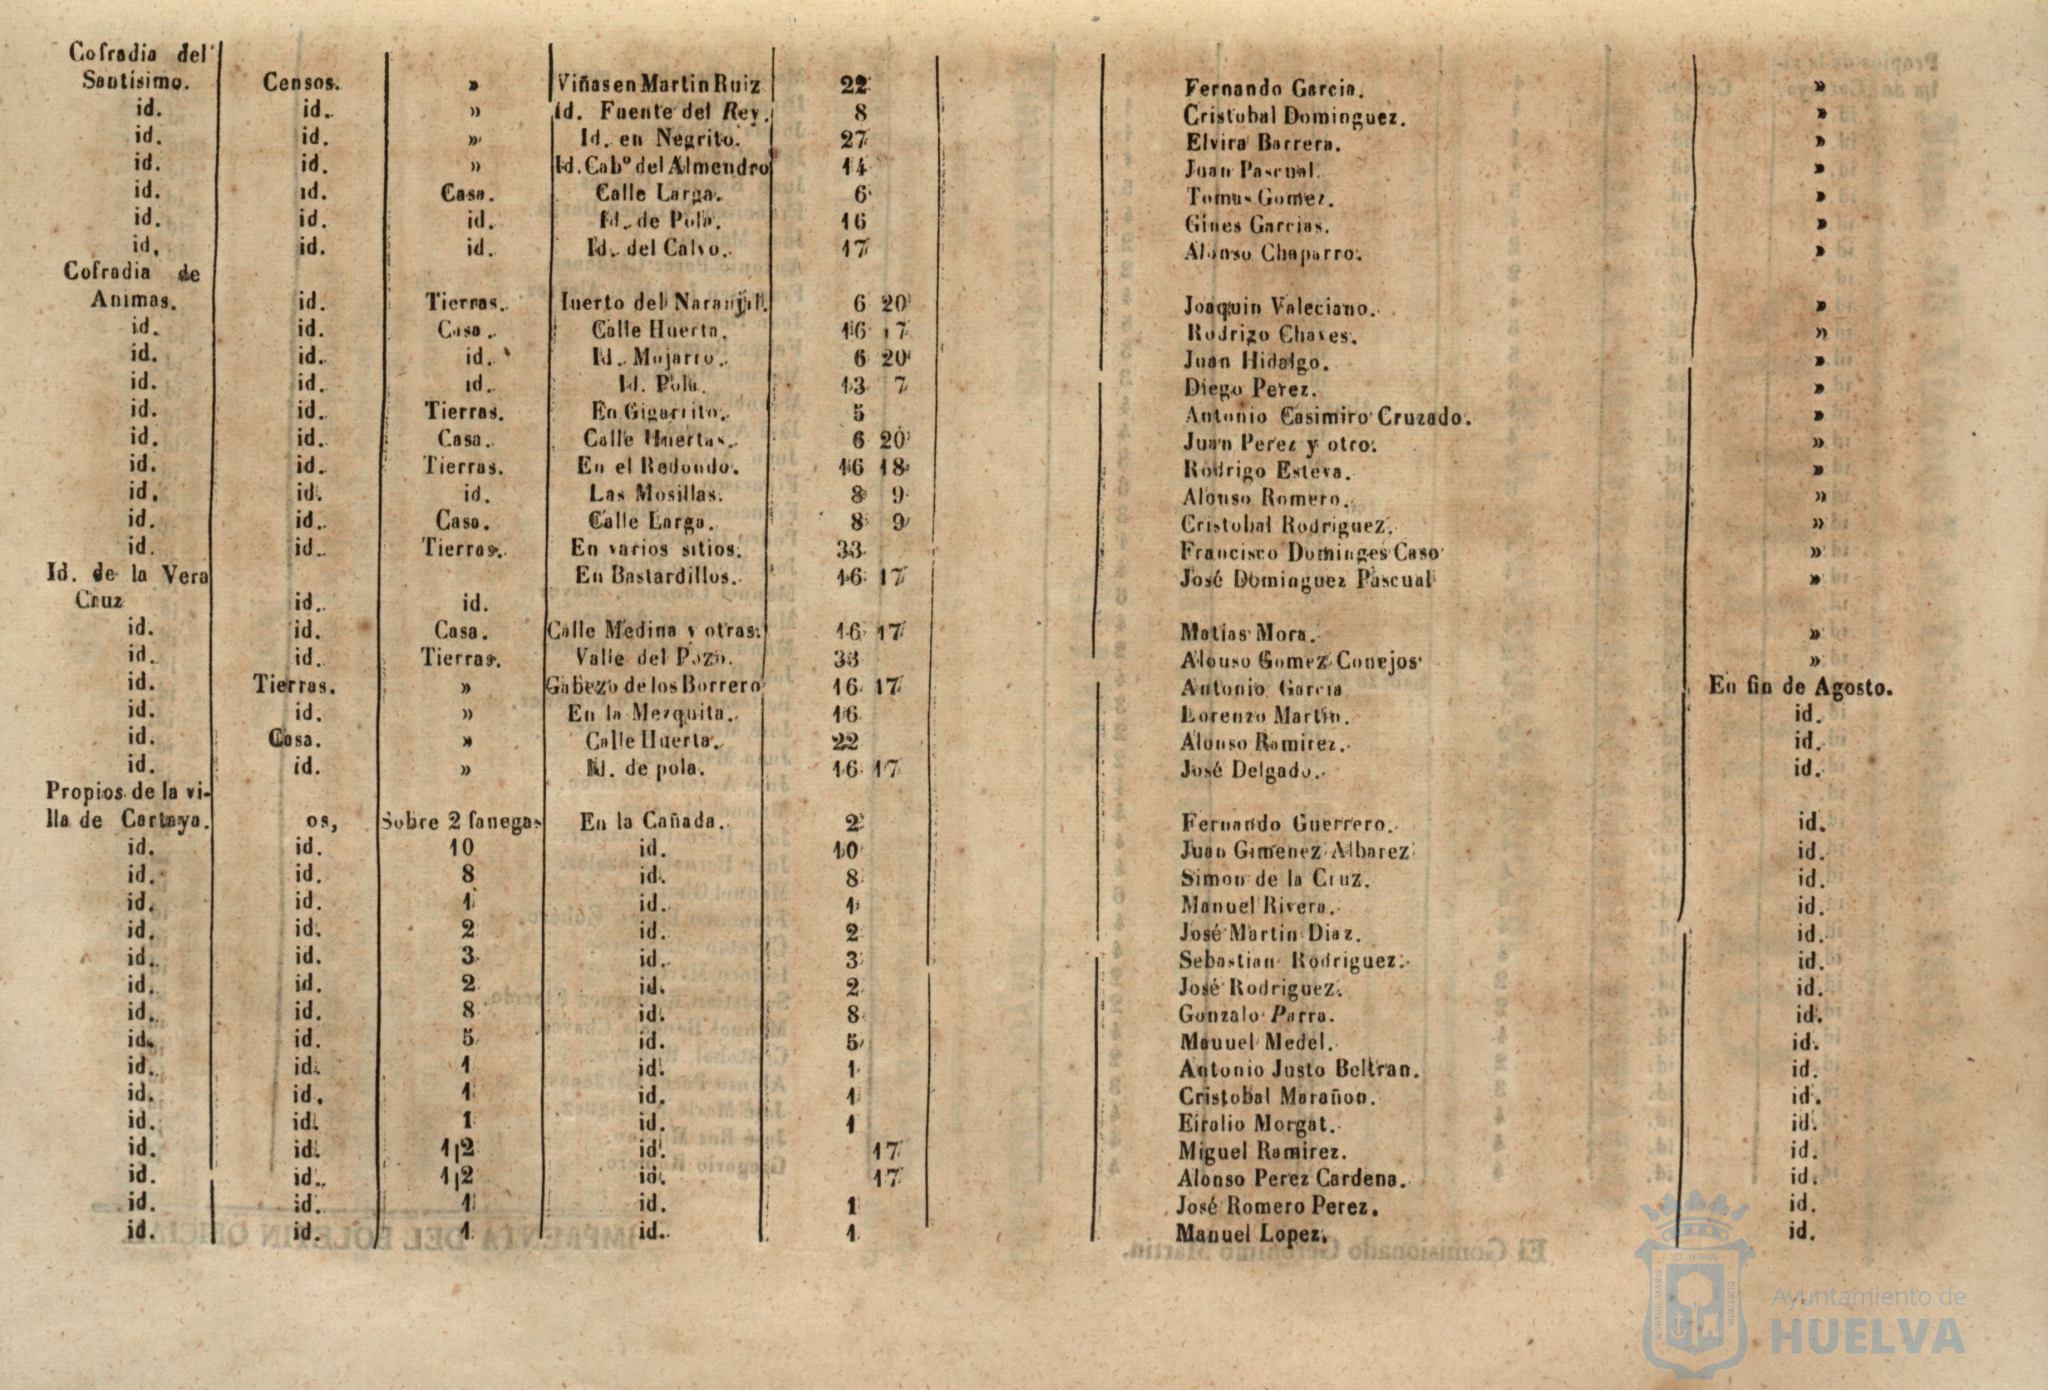 Cofradia del
Santísimo. Censos. » Viñas en Martin Ruiz 22 Fernando Garcia. »
id. id. » Id. Fuente del Rey. 8 Cristobal Dominguez. »
id. id. » Id. en Negrito. 27 Elvira Barrera. »
id. id. » Id. Cabº del Almendro 14 Juan Pascual. »
id. id. Casa. Calle Larga. 6 Tomas Gomez. »
id. id. id. Id. de Pola. 16 Gines Garcias. »
id, id. id. Id. del Calvo. 17 Alonso Chaparro. »
Cofradia de
Animas. id. Tierras. Huerto del Naranjal. 6 20 Joaquin Valeciano. »
id. id. Casa. Calle Huerta. 16 17 Rodrizo Chaves. »
id. id. id. Id. Mojarro. 6 20 Juan Hidalgo. »
id. id. id. Id. Pola. 13 7 Diego Perez. »
id. id. Tierras. En Gigarrito. 5 Antonio Casimiro Cruzado. »
id. id. Casa. Calle Huertas. 6 20 Juan Perez y otro. »
id. id. Tierras. En el Redondo. 16 18 Rodrigo Esteva. »
id. id. id. Las Mosillas. 8 9 Alonso Romero. »
id. id. Casa. Calle Larga. 8 9 Cristobal Rodriguez. »
id. id. Tierras. En varios sitios. 33 Francisco Dominges Caso »
Id. de la Vera En Bastardillos. 16 17 José Dominguez Pascual »
Cruz id. id.
id. id. Casa. Calle Medina y otras. 16 17 Matias Mora. »
id. id. Tierras. Valle del Pozo. 33 Alouso Gomez Conejos »
id. Tierras. » Gabezo de los Borrero 16 17 Antonio Garcia En fin de Agosto.
id. id. » En la Mezquita. 16 Lorenzo Martin. id.
id. Casa. » Calle Huerta. 22 Alonso Ramirez. id.
id. id. » Id. de pola. 16 17 José Delgado. id.
Propios de la vi-
lla de Cartaya. os, Sobre 2 fanegas En la Cañada. 2 Fernando Guerrero. id.
id. id. 10 id. 10 Juan Gimenez Albarez id.
id. id. 8 id. 8 Simon de la Cruz. id.
id. id. 1 id. 1 Manuel Rivera. id.
id. id. 2 id. 2 José Martin Diaz. id.
id. id. 3 id. 3 Sebastian Rodriguez. id.
id. id. 2 id. 2 José Rodriguez. id.
id. id. 8 id. 8 Gonzalo Parra. id.
id. id. 5 id. 5 Mauuel Medel. id.
id. id. 1 id. 1 Antonio Justo Beltran. id.
id. id. 1 id. 1 Cristobal Marañon. id.
id. id. 1 id. 1 Eifolio Morgat. id.
id. id. 1¡2 id. 17 Miguel Ramirez. id.
id. id. 1¡2 id. 17 Alonso Perez Cardena. id.
id. id. 1 id. 1 José Romero Perez. id.
id. id. 1 id. 1 Manuel Lopez. id.
Ayuntamiento de
HUELVA